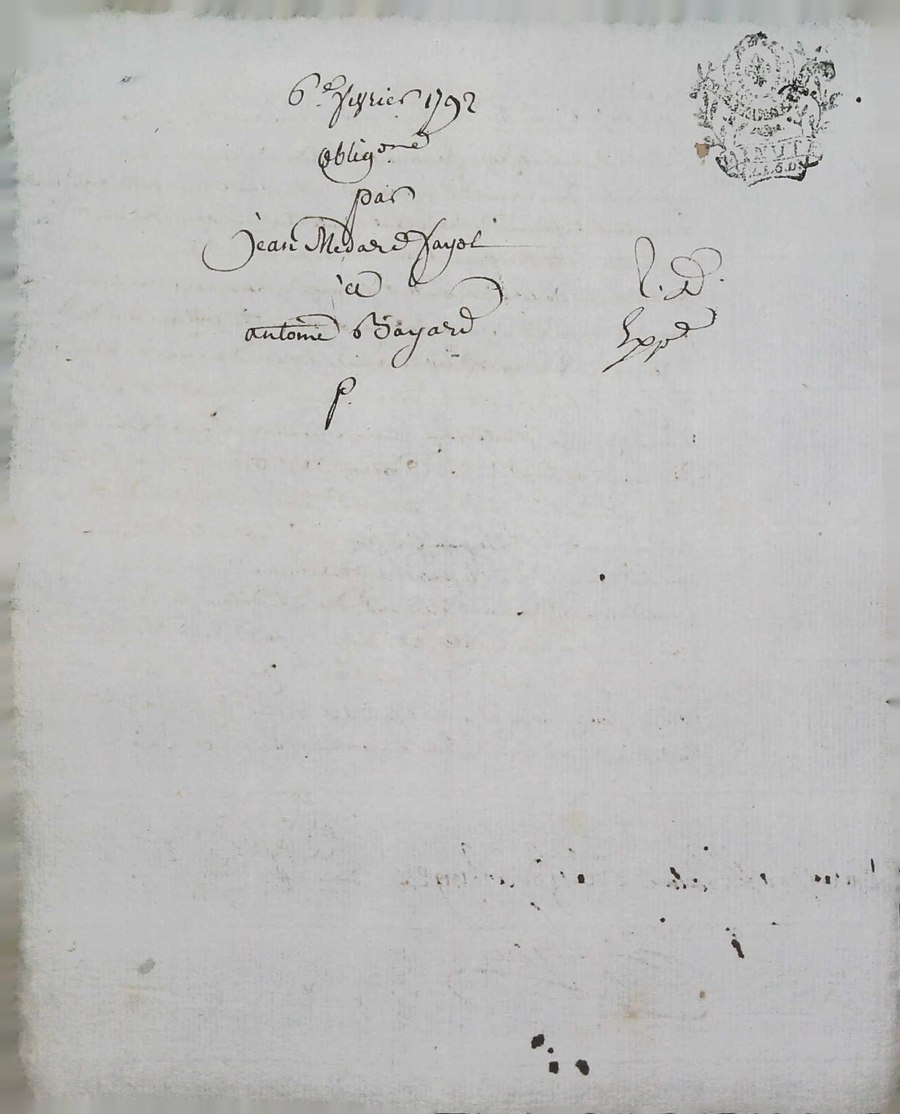 6e. fevrier 1792
obligon.e
par
jean Medard fayol
à
antoine Bayard
p.
Exppé